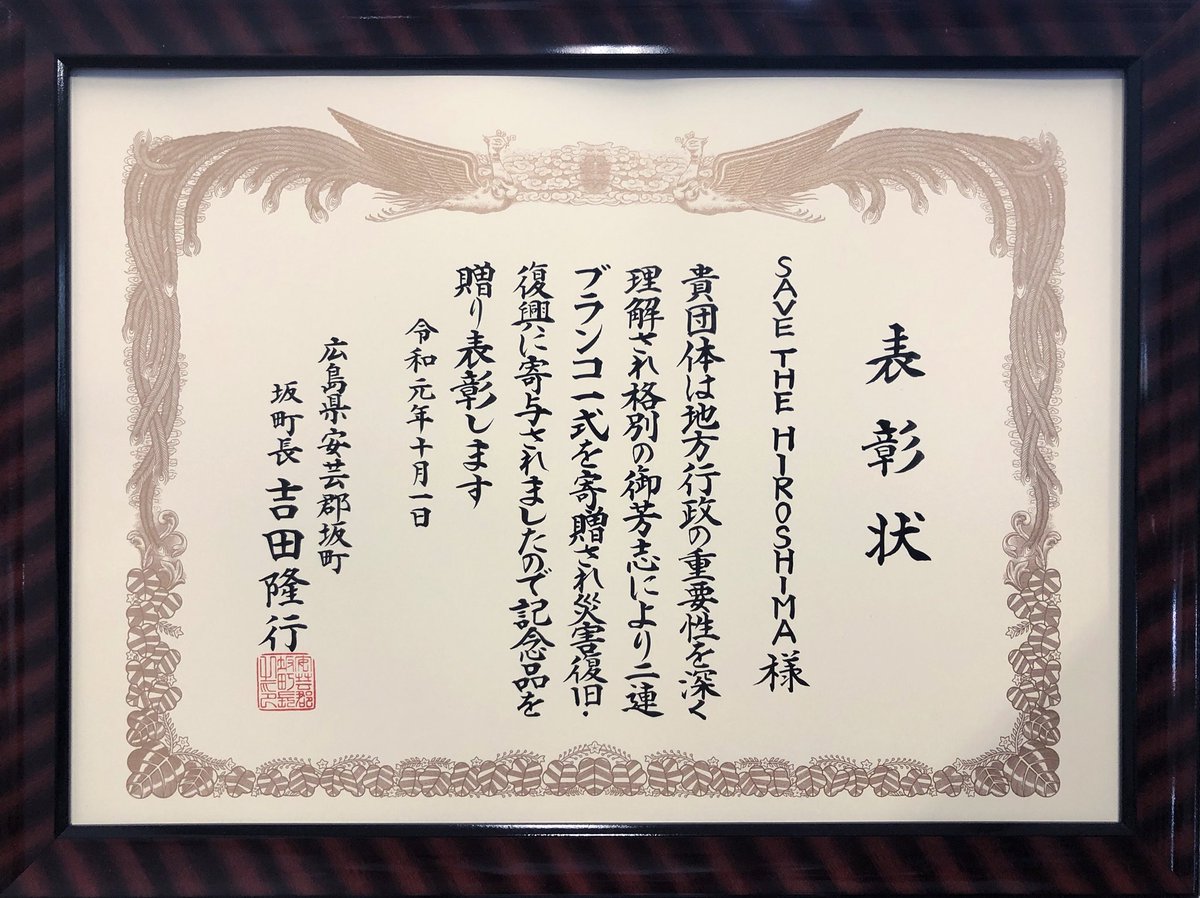 表彰状
SAVE THE HIROSHIMA 様
貴団体は地方行政の重要性を深く
理解され格別の御芳志により二連
ブランコ一式を寄贈され災害復旧・
復興に寄与されましたので記念品を
贈り表彰します
令和元年十月一日
広島県安芸郡坂町
坂町長 吉田隆行
安芸郡
坂町長
之印